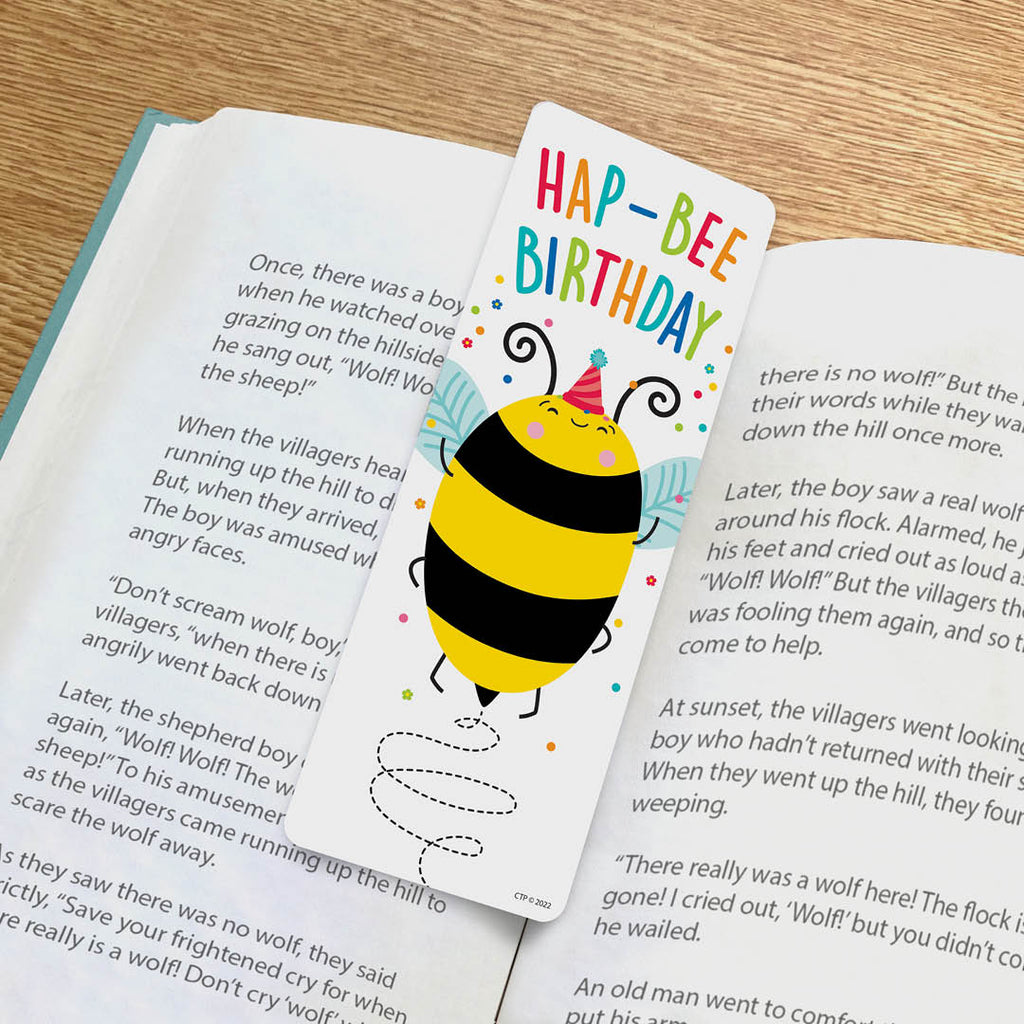 HAP-BEE
BIRTHDAY
CTP © 2022
Once, there was a boy
when he watched ove
grazing on the hillside
he sang out, “Wolf! Wo
the sheep!”
When the villagers hea
running up the hill to d
But, when they arrived,
The boy was amused wh
angry faces.
“Don’t scream wolf, boy,
villagers, “when there is
angrily went back down
Later, the shepherd boy
again, “Wolf! Wolf! The w
sheep!” To his amusemen
as the villagers came running up the hill to
scare the wolf away.
As they saw there was no wolf, they said
rictly, “Save your frightened cry for when
re really is a wolf! Don’t cry ‘wolf’
there is no wolf!” But the
their words while they wa
down the hill once more.
Later, the boy saw a real wolf
around his flock. Alarmed, he
his feet and cried out as loud as
“Wolf! Wolf!” But the villagers th
was fooling them again, and so t
come to help.
At sunset, the villagers went looking
boy who hadn’t returned with their s
When they went up the hill, they foun
weeping.
“There really was a wolf here! The flock is
gone! I cried out, ‘Wolf!’ but you didn’t co
he wailed.
An old man went to comfort
put his arm